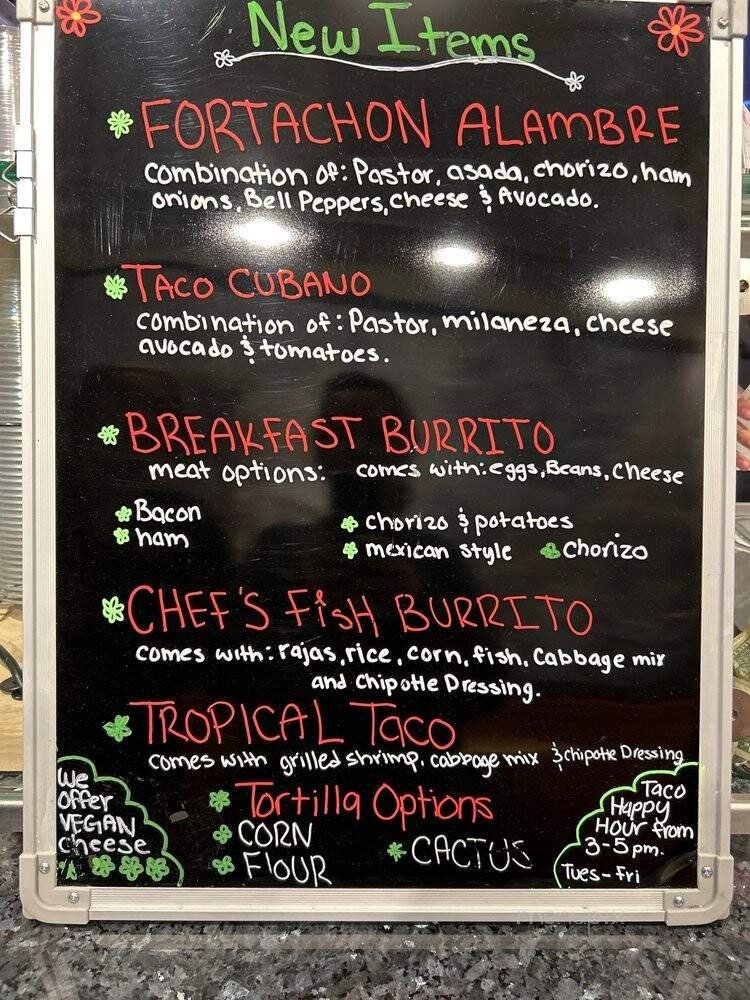 New Items
FORTACHON ALAMBRE
combination of: Pastor, asada, chorizo, ham
onions, Bell Peppers, cheese & Avocado.
TACO CUBANO
combination of: Pastor, milaneza, cheese
avocado & tomatoes.
BREAKFAST BURRITO
meat options: comes with: eggs, Beans, cheese
Bacon
ham
chorizo & potatoes
mexican style Chorizo
CHEF'S FisH BURRITO
comes with: rajas, rice, corn, fish, Cabbage mix
and Chipotle Dressing.
TROPICAL Taco
comes with grilled shrimp, cabbage mix & chipotle Dressing
We
offer
VEGAN
cheese
Tortilla Options
CORN
FlOUR
CACTUS
Taco
Happy
Hour from
3-5 pm.
Tues-Fri